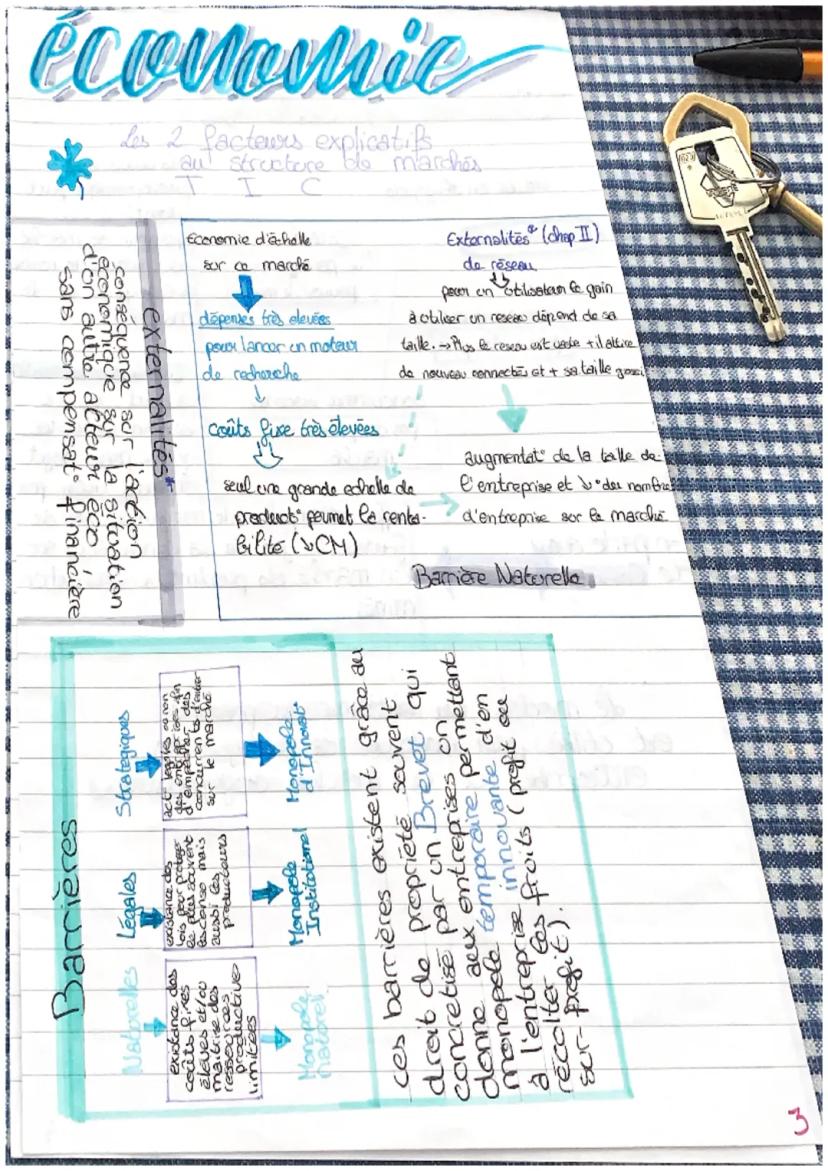 économie
Les 2 facteurs explicatifs
au structure de marchés
T I C
externalités*
conséquence sur l'action
économique sur la situation
d'un autre acteur éco
sans compensat° financière
Economie d'échelle
sur ce marché
dépenses très elevées
pour lancer un moteur
de recherche
↓
coûts fixe très élevées
seul une grande echelle de
product° permet la renta-
bilité (↘CM)
Externalités* (chap II)
de réseau
pour un utilisateur le gain
à utiliser un reseau dépend de sa
taille. → Plus le reseau est vaste + il attire
de nouveau connectés et + sa taille
augmentat° de la taille de
l'entreprise et ↘ des nombre
d'entreprise sur le marché
Barrière Naturelle
Barrières
Naturelles
existence des
coûts fixes
élevés et/ou
maitrise des
ressources
productive
limitées
Monopole
naturel
Légales
existence des
lois pour proteger
le plus souvent
les conso mais
aussi les
producteurs
Monopole
Institutionnel
Stratégiques
act° légales ou non
des entreprises afin
d'empêcher des
concurrents d'entrer
sur le marché
Monopole
d'Innovat°
ces barrières existent grâce au
droit de propriété souvent
concretisé par un Brevet qui
donne aux entreprises un
monopole temporaire permettant
à l'entreprise innovante d'en
récolter les fruits (profit ou
sur-profit).
3